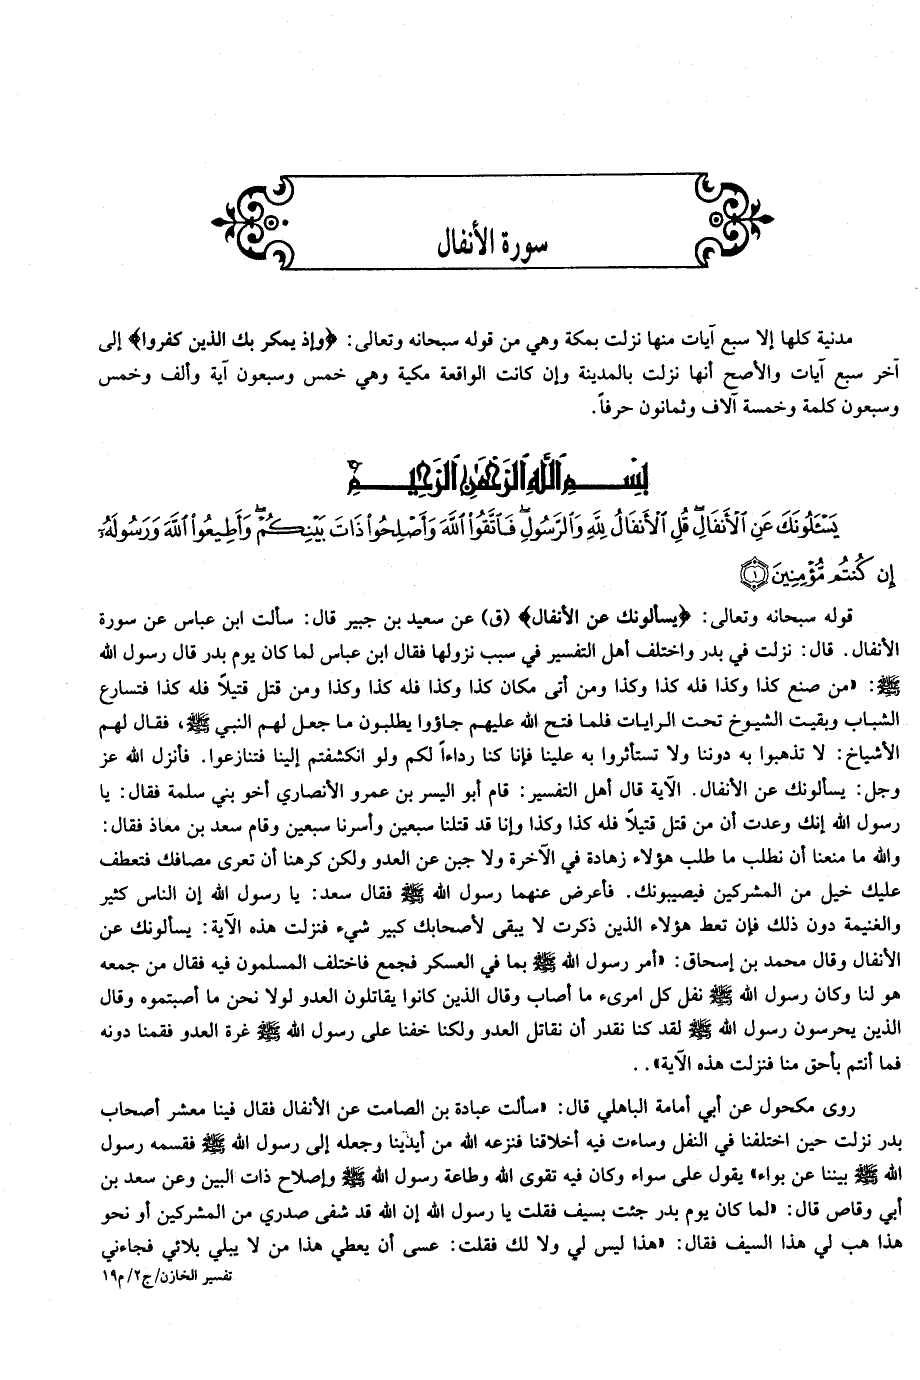 سورة الأنفال
مدنية كلها إلا سبع آيات منها نزلت بمكة وهي من قوله سبحانه وتعالى: ﴿وإذ يمكر بك الذين كفروا﴾ إلى
آخر سبع آيات والأصح أنها نزلت بالمدينة وإن كانت الواقعة مكية وهي خمس وسبعون آية وألف وخمس
وسبعون كلمة وخمسة آلاف وثمانون حرفاً.
بِسْمِ اللَّهِ الرَّحْمَنِ الرَّحِيمِ
يَسْـَٔلُونَكَ عَنِ ٱلْأَنفَالِ ۖ قُلِ ٱلْأَنفَالُ لِلَّهِ وَٱلرَّسُولِ ۖ فَٱتَّقُوا۟ ٱللَّهَ وَأَصْلِحُوا۟ ذَاتَ بَيْنِكُمْ ۖ وَأَطِيعُوا۟ ٱللَّهَ وَرَسُولَهُۥٓ
إِن كُنتُم مُّؤْمِنِينَ ۝١
قوله سبحانه وتعالى: ﴿يسألونك عن الأنفال﴾ (ق) عن سعيد بن جبير قال: سألت ابن عباس عن سورة
الأنفال. قال: نزلت في بدر واختلف أهل التفسير في سبب نزولها فقال ابن عباس لما كان يوم بدر قال رسول الله
ﷺ: «من صنع كذا وكذا فله كذا وكذا ومن أتى مكان كذا وكذا فله كذا وكذا ومن قتل قتيلاً فله كذا فتسارع
الشباب وبقيت الشيوخ تحت الرايات فلما فتح الله عليهم جاؤوا يطلبون ما جعل لهم النبي ﷺ، فقال لهم
الأشياخ: لا تذهبوا به دوننا ولا تستأثروا به علينا فإنا كنا رداءاً لكم ولو انكشفتم إلينا فتنازعوا. فأنزل الله عز
وجل: يسألونك عن الأنفال. الآية قال أهل التفسير: قام أبو اليسر بن عمرو الأنصاري أخو بني سلمة فقال: يا
رسول الله إنك وعدت أن من قتل قتيلاً فله كذا وكذا وإنا قد قتلنا سبعين وأسرنا سبعين وقام سعد بن معاذ فقال:
والله ما منعنا أن نطلب ما طلب هؤلاء زهادة في الآخرة ولا جبن عن العدو ولكن كرهنا أن تعرى مصافك فتعطف
عليك خيل من المشركين فيصيبونك. فأعرض عنهما رسول الله ﷺ فقال سعد: يا رسول الله إن الناس كثير
والغنيمة دون ذلك فإن تعط هؤلاء الذين ذكرت لا يبقى لأصحابك كبير شيء فنزلت هذه الآية: يسألونك عن
الأنفال وقال محمد بن إسحاق: «أمر رسول الله ﷺ بما في العسكر فجمع فاختلف المسلمون فيه فقال من جمعه
هو لنا وكان رسول الله ﷺ نفل كل امرىء ما أصاب وقال الذين كانوا يقاتلون العدو لولا نحن ما أصبتموه وقال
الذين يحرسون رسول الله ﷺ لقد كنا نقدر أن نقاتل العدو ولكنا خفنا على رسول الله ﷺ غرة العدو فقمنا دونه
فما أنتم بأحق منا فنزلت هذه الآية»..
روى مكحول عن أبي أمامة الباهلي قال: «سألت عبادة بن الصامت عن الأنفال فقال فينا معشر أصحاب
بدر نزلت حين اختلفنا في النفل وساءت فيه أخلاقنا فنزعه الله من أيدينا وجعله إلى رسول الله ﷺ فقسمه رسول
الله ﷺ بيننا عن بواء» يقول على سواء وكان فيه تقوى الله وطاعة رسول الله ﷺ وإصلاح ذات البين وعن سعد بن
أبي وقاص قال: «لما كان يوم بدر جئت بسيف فقلت يا رسول الله إن الله قد شفى صدري من المشركين أو نحو
هذا هب لي هذا السيف فقال: «هذا ليس لي ولا لك فقلت: عسى أن يعطي هذا من لا يبلي بلائي فجاءني
تفسير الخازن/ج٢/م١٩